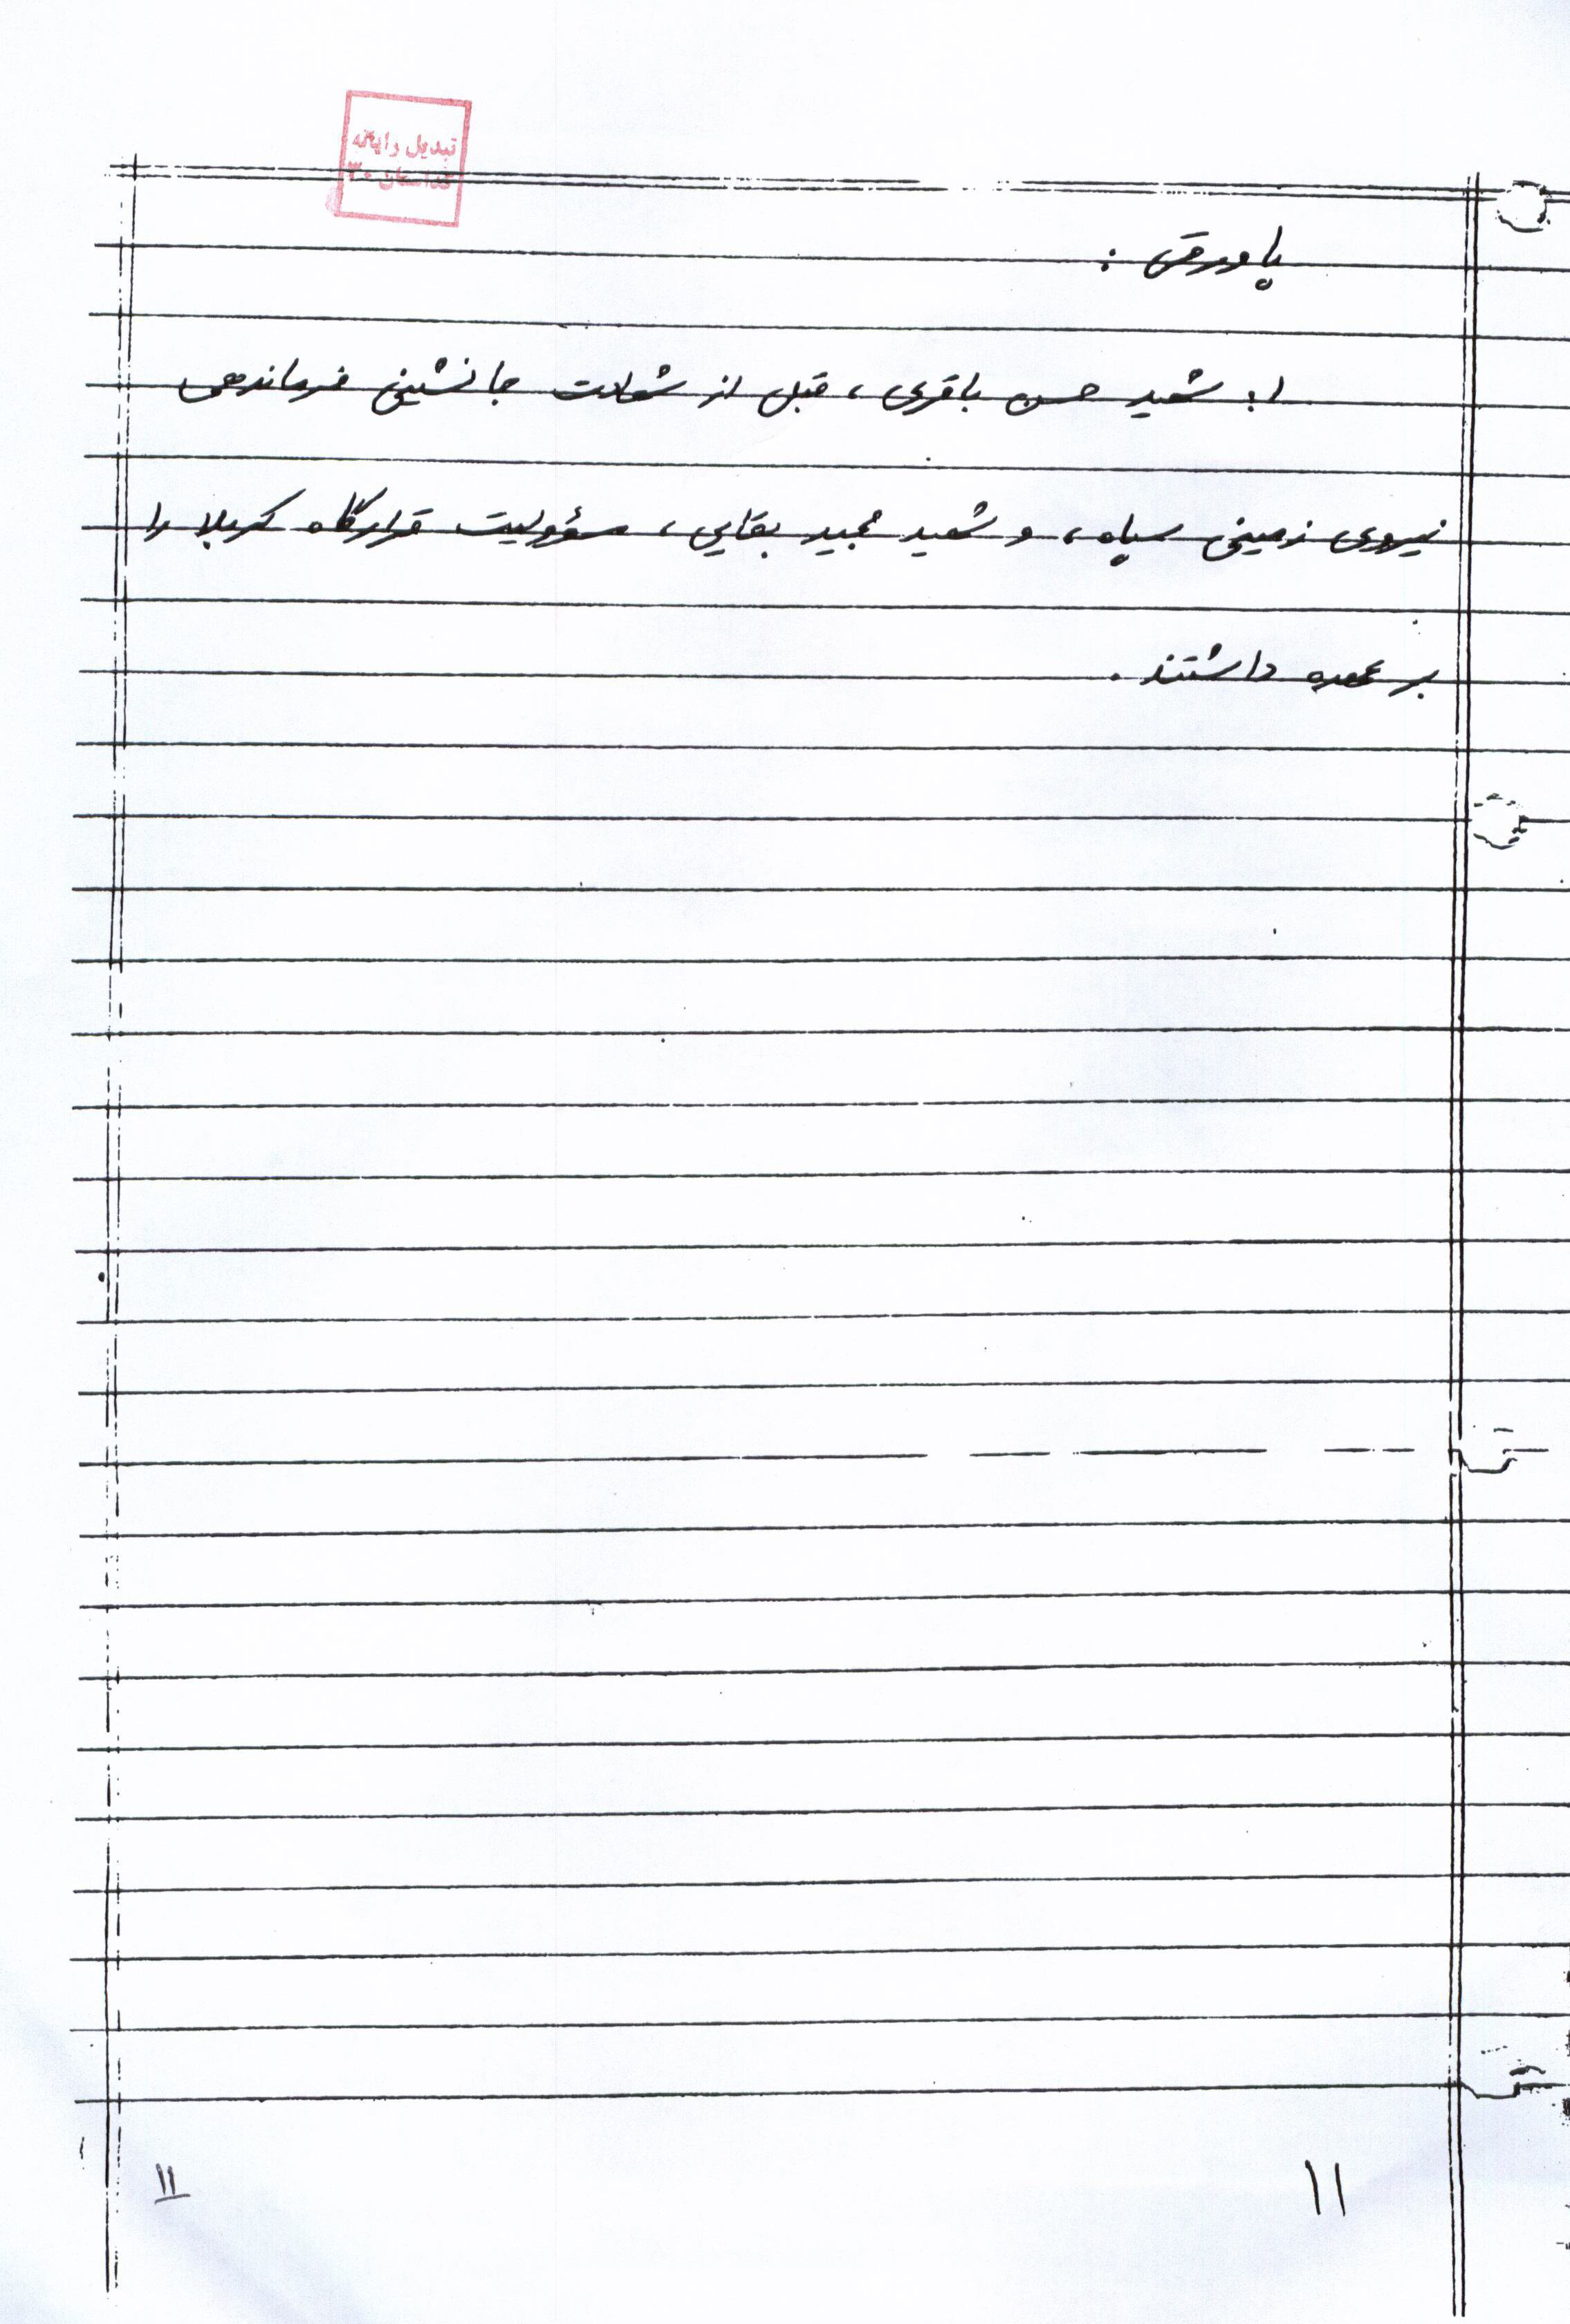 تبدیل رایانه
پاورقی :
۱: شهید حسن باقری، قبل از شهادت جانشینی فرماندهی
نیروی زمینی سپاه، و شهید مجید بقایی، مسؤولیت قرارگاه کربلا را
بر عهده داشتند.
۱۱
۱۱